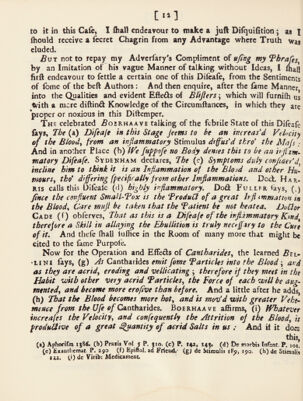 [ 12 ]
to it in this Case, I ſhall endeavour to make a juſt Diſquiſition; as I
ſhould receive a ſecret Chagrin from any Advantage where Truth was
eluded.
BUT not to repay my Adverſary's Compliment of uſing my Phraſes,
by an Imitation of his vague Manner of talking without Ideas, I ſhall
firſt endeavour to ſettle a certain one of this Diſeaſe, from the Sentiments
of ſome of the beſt Authors: And then enquire, after the ſame Manner,
into the Qualities and evident Effects of Bliſters; which will furniſh us
with a more diſtinct Knowledge of the Circumſtances, in which they are
proper or noxious in this Diſtemper.
THE celebrated BOERHAAVE talking of the febrile State of this Diſeaſe
ſays, The (a) Diſeaſe in this Stage ſeems to be an increas'd Velocity
of the Blood, from an inflammatory Stimulus diffus'd thro' the Maſs:
And in another Place (b) We ſuppoſe no Body denies this to be an inflam-
matory Diſeaſe. SYDENHAM declares, The (c) Symptoms duly conſider'd,
incline him to think it is an Inflammation of the Blood and other Hu-
mours, tho' differing ſpecifically from other Inflammations. Doct. HAR-
RIS calls this Diſeaſe (d) highly inflammatory. Doct FULLER ſays, (.)
ſince the confluent Small-Pox is the Product of a great Inflammation in
the Blood, Care muſt be taken that the Patient be not heated. Doctor
CADE (f) obſerves, That as this is a Diſeaſe of the inflammatory Kind,
therefore a Skill in allaying the Ebullition is truly neceſſary to the Cure
of it. And theſe ſhall ſuffice in the Room of many more that might be
cited to the ſame Purpoſe.
Now for the Operation and Effects of Cantharides, the learned BEL-
LINI ſays, (g) All Cantharides emit ſome Particles into the Blood; and
as they are acrid, eroding and vellicating; therefore if they meet in the
Habit with other very acrid Particles, the Force of each will be aug-
mented, and become more eroſive than before. And a little after he adds,
(h) That the Blood becomes more hot, and is mov'd with greater Vehe-
mence from the Uſe of Cantharides. BOERHAAVE affirms, (i) Whatever
increaſes the Velocity, and conſequently the Attrition of the Blood, is
productive of a great Quantity of acrid Salts in us: And if it does
this,
(a) Aphoriſm 1386. (b) Praxis Vol 5 P. 310. (c) P. 142, 149. (d) De morbis Infant. P. 101.
(e) Exanthemat. P. 290 (f) Epiſtol. ad Friend. (g) de Stimulis 189, 190. (h) de Stimulis
122. (i) de Virib: Medicament.